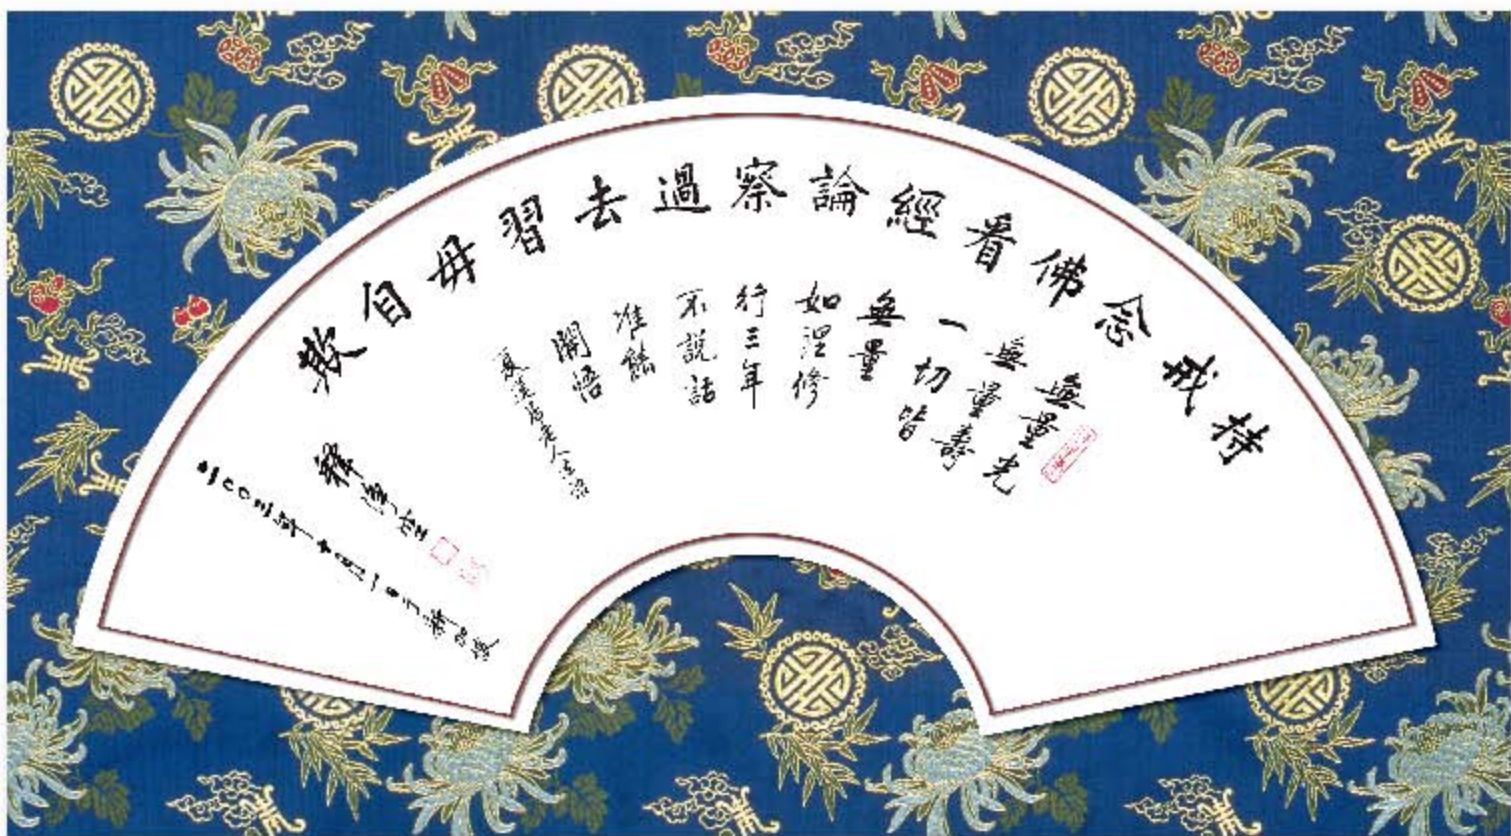 持戒念佛看經論察過去習毋自欺
無量光
無量壽
一切皆
無量
如理修
行三年
不說話
准能
開悟
夏蓮居老人法語
釋淨空
二〇〇三年 日于新加坡